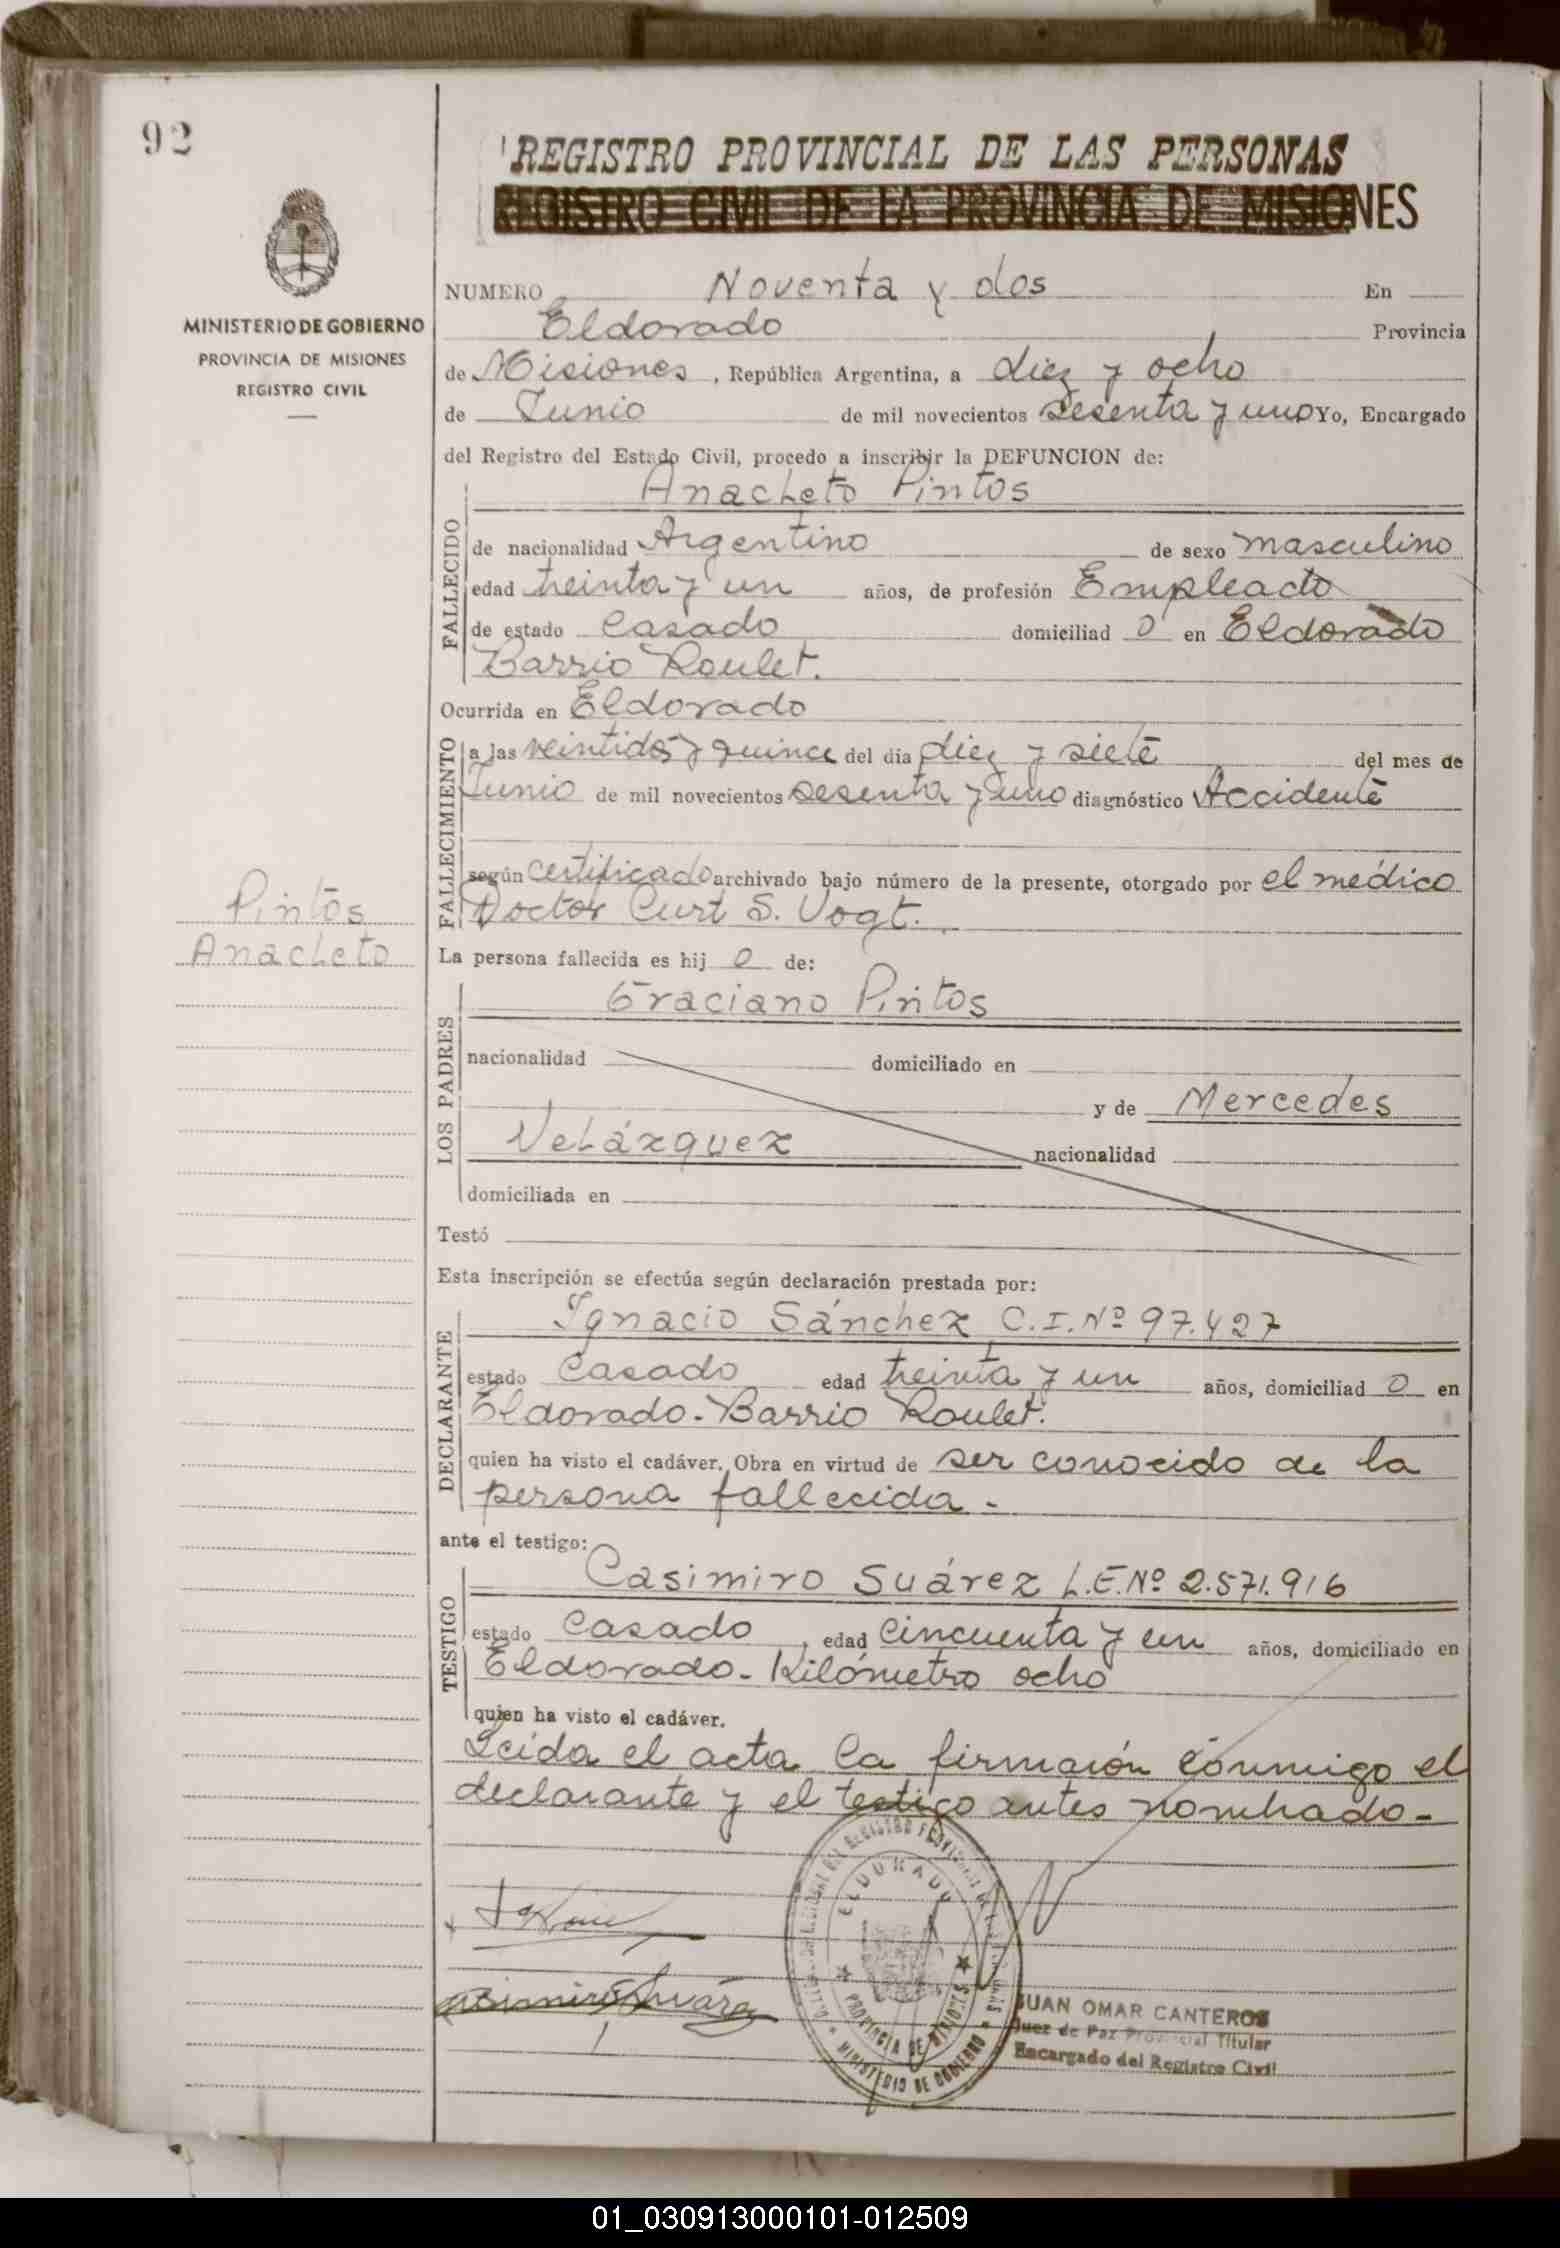 92
REGISTRO PROVINCIAL DE LAS PERSONAS
REGISTRO CIVIL DE LA PROVINCIA DE MISIONES
MINISTERIO DE GOBIERNO
PROVINCIA DE MISIONES
REGISTRO CIVIL
NUMERO Noventa y dos En
Eldorado Provincia
de Misiones, República Argentina, a diez y ocho
de Junio de mil novecientos sesenta y uno Yo, Encargado
del Registro del Estado Civil, procedo a inscribir la DEFUNCION de:
Anacleto Pintos
FALLECIDO
de nacionalidad Argentino de sexo masculino
edad treinta y un años, de profesión Empleado
de estado casado domiciliad o en Eldorado
Barrio Roulet.
Ocurrida en Eldorado
FALLECIMIENTO
a las veintidós y quince del día diez y siete del mes de
Junio de mil novecientos sesenta y uno diagnóstico Accidente
según certificado archivado bajo número de la presente, otorgado por el médico
Doctor Curt S. Vogt.
Pintos
Anacleto
La persona fallecida es hij o de:
LOS PADRES
Graciano Pintos
nacionalidad domiciliado en
y de Mercedes
Velázquez nacionalidad
domiciliada en
Testó
Esta inscripción se efectúa según declaración prestada por:
DECLARANTE
Ignacio Sánchez C.I.Nº 97.427
estado casado edad treinta y un años, domiciliad o en
Eldorado - Barrio Roulet.
quien ha visto el cadáver. Obra en virtud de ser conocido de la
persona fallecida -
ante el testigo:
TESTIGO
Casimiro Suárez L.E.Nº 2.571.916
estado casado, edad cincuenta y un años, domiciliado en
Eldorado - Kilómetro ocho
quien ha visto el cadáver.
Leida el acta la firmarón conmigo el
declarante y el testigo antes nombrado -
Casimiro Suárez
ELDORADO
PROVINCIA DE MISIONES
MINISTERIO DE GOBIERNO
JUAN OMAR CANTEROS
Juez de Paz Provincial Titular
Encargado del Registro Civil
01_030913000101-012509